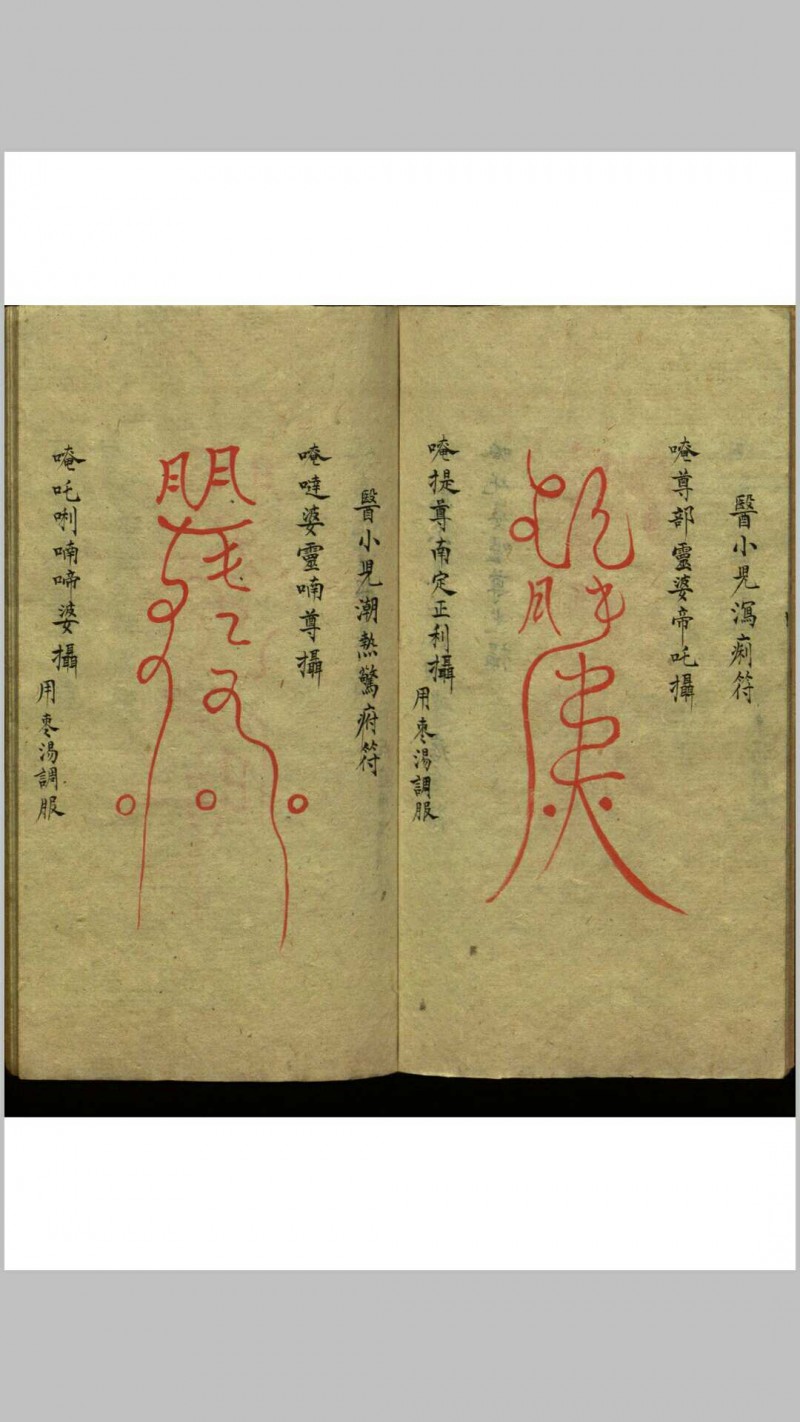 醫小兒瀉痢符
唵尊部靈婆帝吒攝
唵提尊南定正利攝
用棗湯調服
醫小兒潮熱驚疳符
唵噠婆靈喃尊攝
唵吒唎喃啼婆攝
用棗湯調服